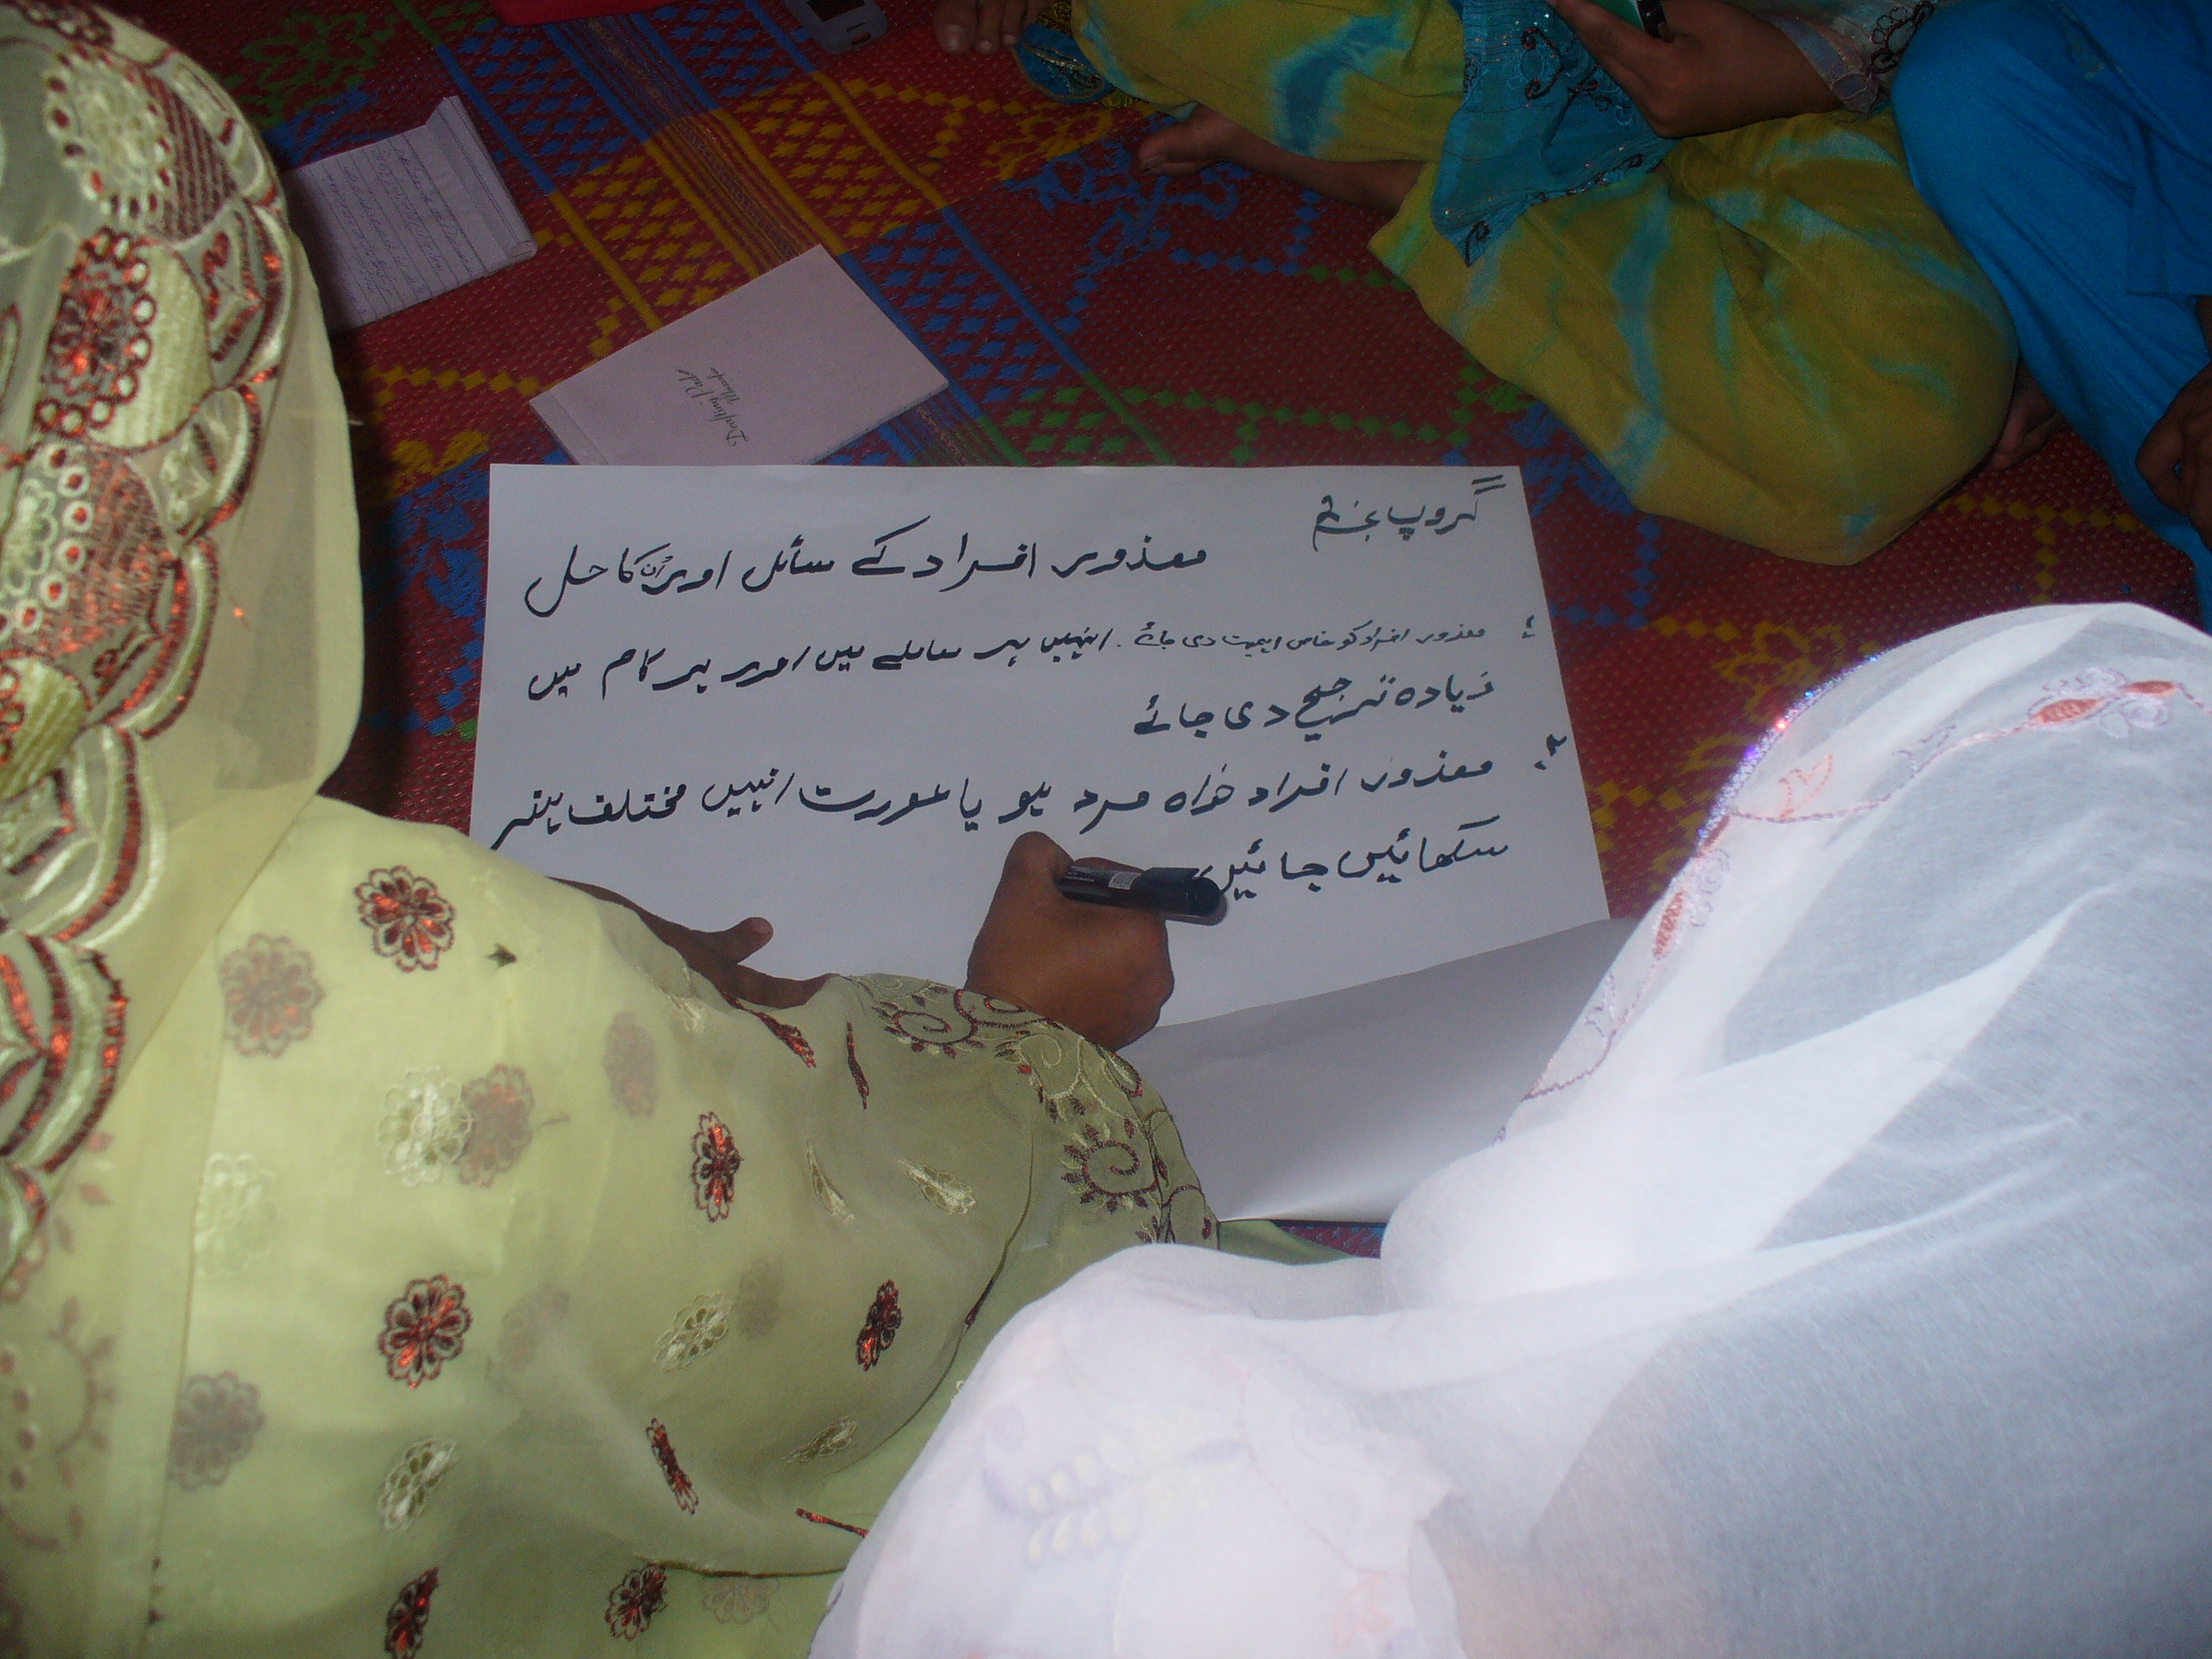 گروپ نمبر
معذور افراد کے مسائل اور اُن کا حل
۱۔ معذور افراد کو خاص اہمیت دی جائے۔ انہیں ہر معاملے میں اور ہر کام میں
زیادہ ترجیح دی جائے
۲۔ معذور افراد خواہ مرد ہو یا عورت انہیں مختلف ہنر
سکھائیں جائیں